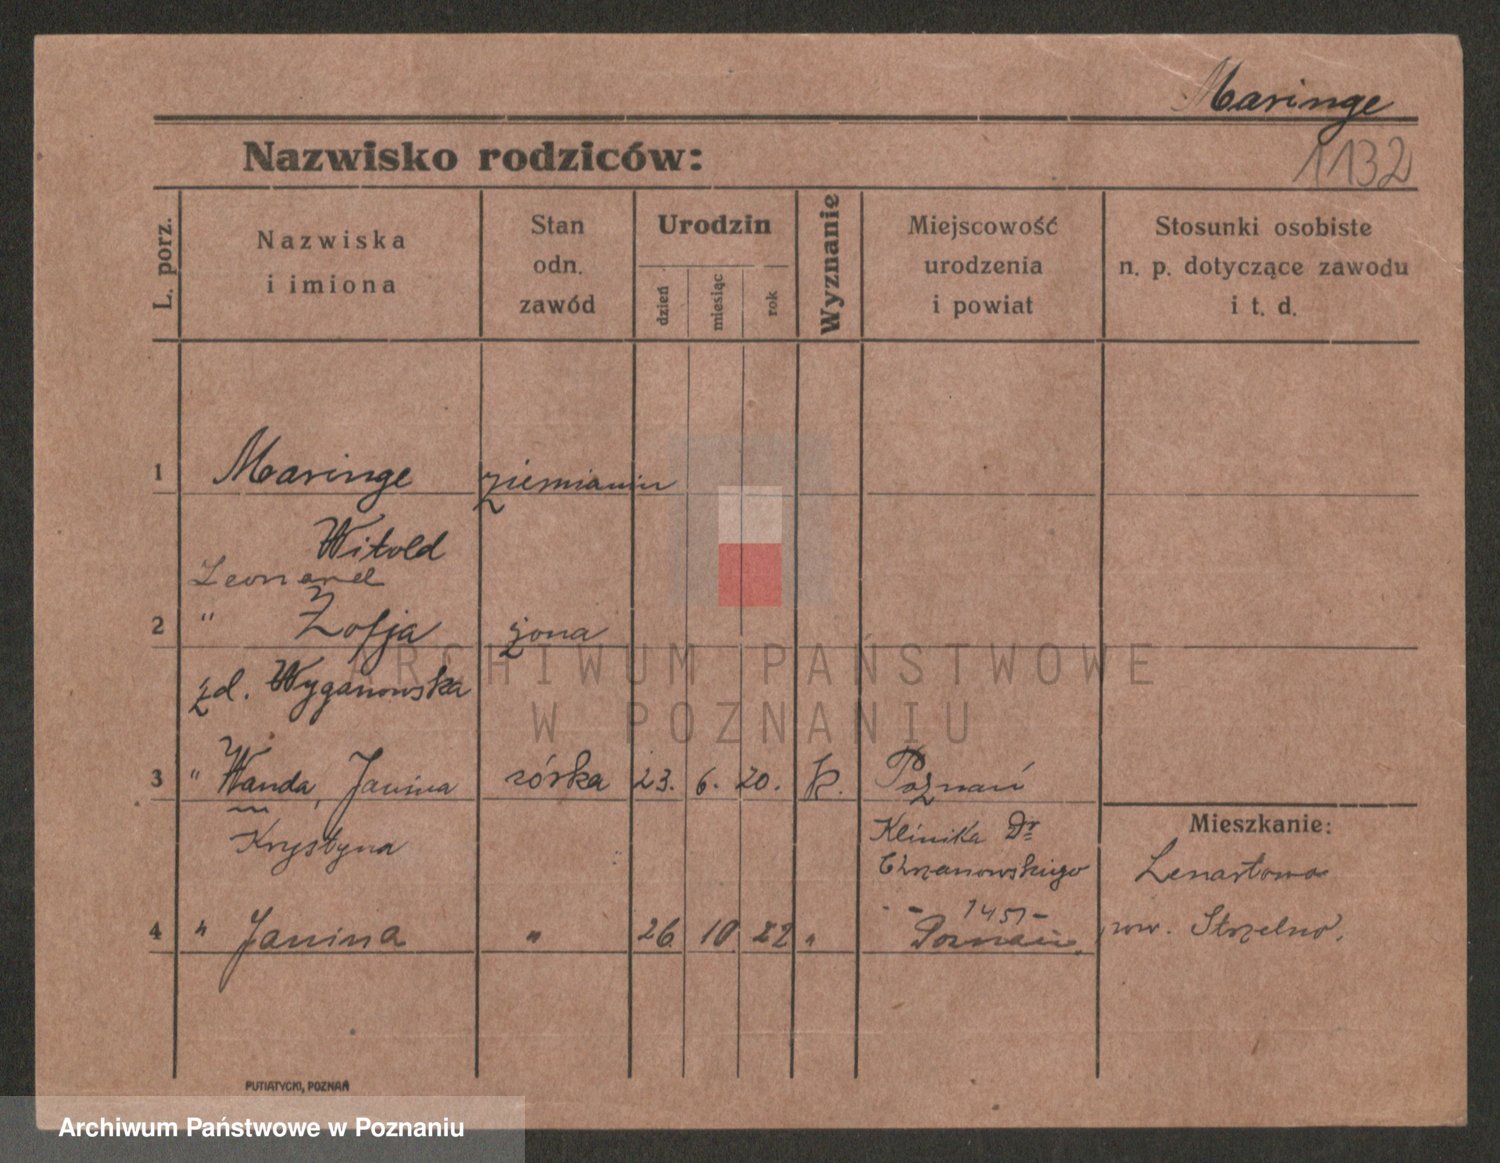 Maringe
Nazwisko rodziców:
1132
L. porz.
Nazwiska
i imiona
Stan
odn.
zawód
Urodzin
dzień
miesiąc
rok
Wyznanie
Miejscowość
urodzenia
i powiat
Stosunki osobiste
n. p. dotyczące zawodu
i t. d.
1 Maringe ziemianin
Witold
Leonard
2 " Zofja żona
zd. Wyganowska
3 " Wanda, Janina córka 23. 6. 20. k. Poznań
Krystyna
Klinika Dr
Chrzanowskiego
1451-
4 " Janina " 26 10 22 " Poznań
Mieszkanie:
Lenartowo
pow. Strzelno.
PUTIATYCKI, POZNAŃ
ARCHIWUM PAŃSTWOWE
W POZNANIU
Archiwum Państwowe w Poznaniu